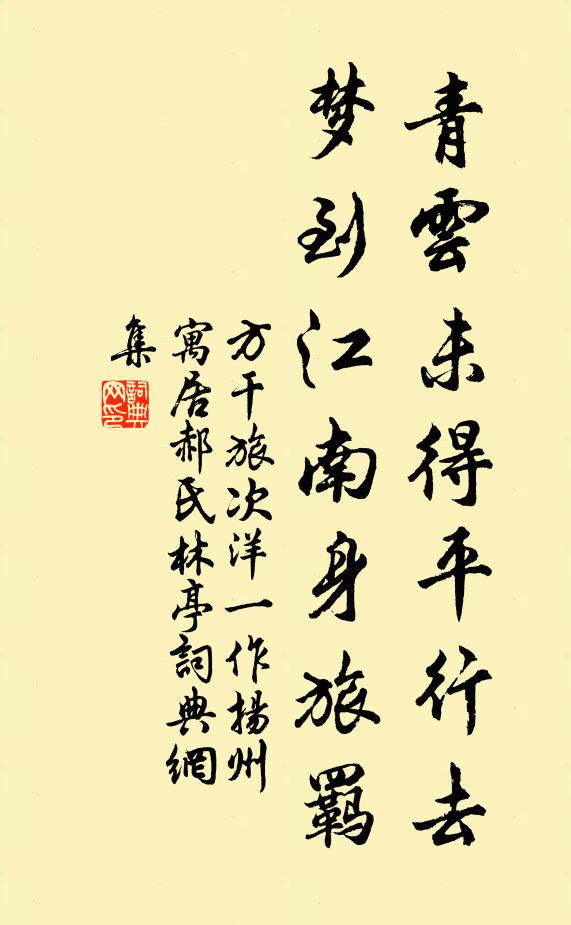 青雲未得平行去
梦到江南身旅羈
方干旅次洋一作揚州
寓居郝氏林亭詞典網
集
詞典
网印